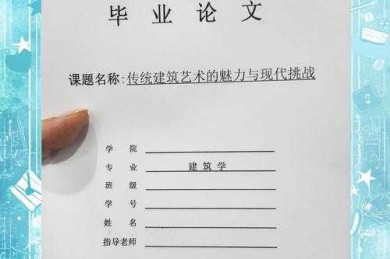 毕业论文
课题名称:传统建筑艺术的魅力与现代挑战
学院
专业 建筑学
班级
学号
姓名
指导老师